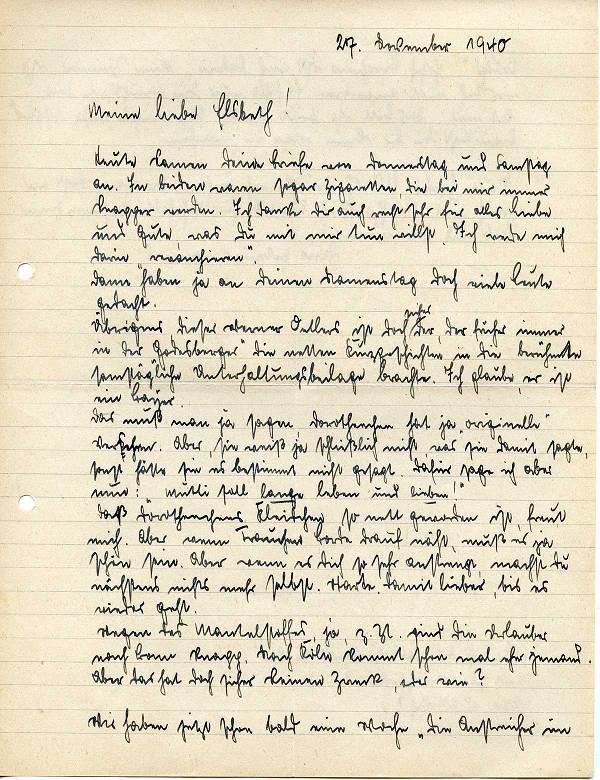 27. November 1940
Meine liebe Elsbeth!
Heute kamen Deine Briefe von Donnerstag und Samstag
an. In beiden waren sogar Zigaretten die bei mir immer
knapper werden. Ich danke Dir auch recht sehr für alles Liebe
und Gute, was Du mit mir tun willst. Ich werde mich
darin "revanchieren".
Dann haben ja an Deinen Namenstag doch viele Leute
gedacht.
Übrigens dieser Werner Oellers ist doch sicher der, der früher immer
in der "Godesberger" die netten Kurzgeschichten in die berühmte
samstägliche Unterhaltungsbeilage brachte. Ich glaube, er ist
ein Bayer.
Das muß man ja sagen, Dorothenchen hat ja "originelle"
Verschen. Aber, sie weiß ja schließlich nicht, was sie damit sagte,
sonst hätte sie es bestimmt nicht gesagt. Dafür sage ich aber
nun: "Mutti soll lange leben und lieben!"
Daß Dorothenchens Kleidchen so nett geworden ist, freut
mich. Aber wenn Frauchen Borde drauf näht, muß es ja
schön sein. Aber wenn es Dich so sehr anstrengt, machst Du
nächstens nichts mehr selbst. Warte damit lieber, bis es
wieder geht.
Wegen des Mantelstoffes, ja, z. Zt. sind die Urlauber
nach Bonn knapp. Nach Köln kommt schon mal eher jemand.
Aber das hat doch sicher keinen Zweck, oder wie?
Wir haben jetzt schon bald eine Woche "die Anstreicher im